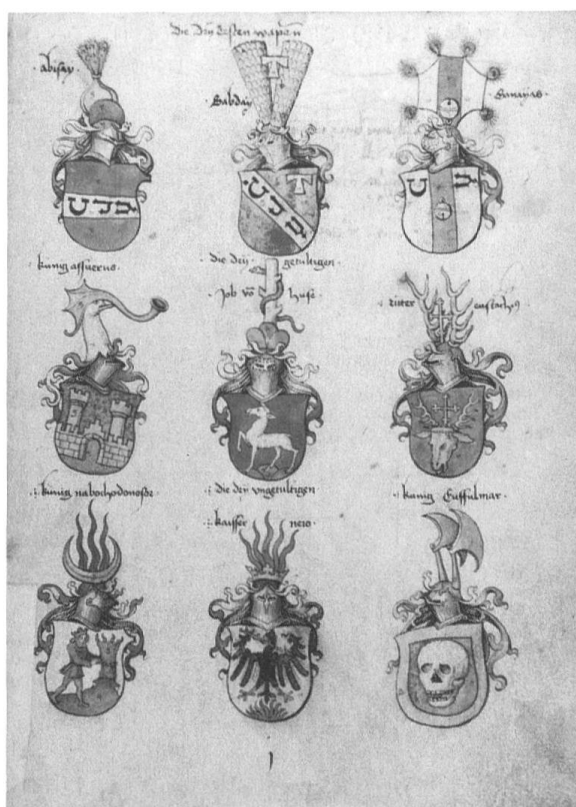 die drÿ besten wapen
abisay
Sabday
banayas
künig assuerus
die dry getultigen
Job vō husse
ritter eustachꝰ
künig nabochodonosor
die drÿ vngetultigen
kaisser nero
künig
1